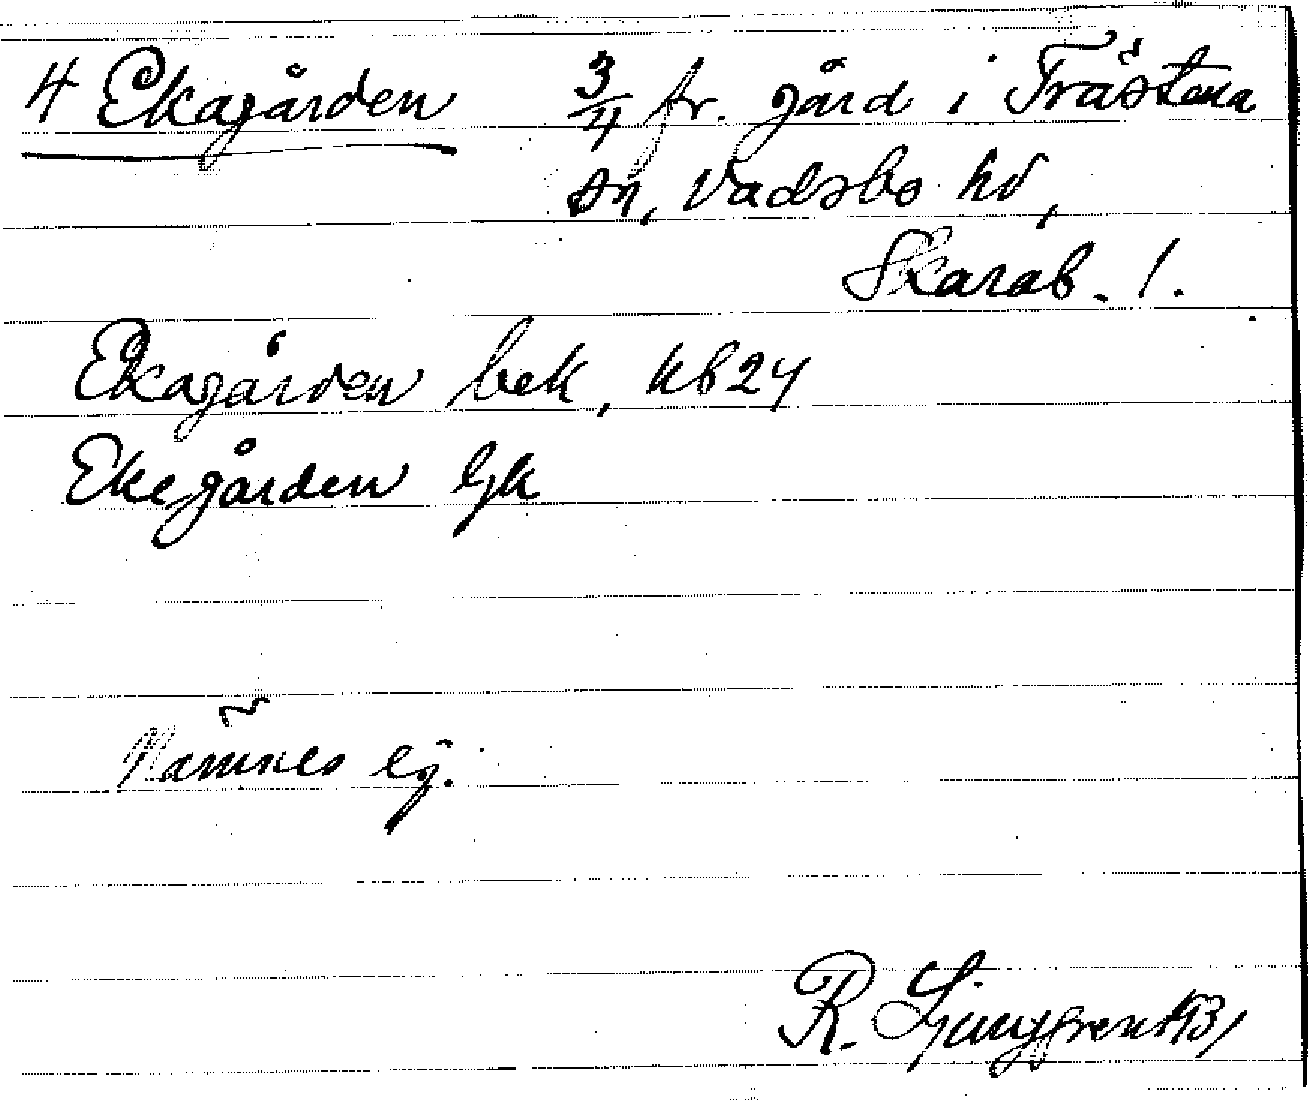 4 Ekagården 3/4 fr. gård i Trästena
sn, Vadsbo hd,
Skarab. l.
Ekagården bek, kb 24
Ekegården Gk
Nämnes ej.
R. Ljunggren